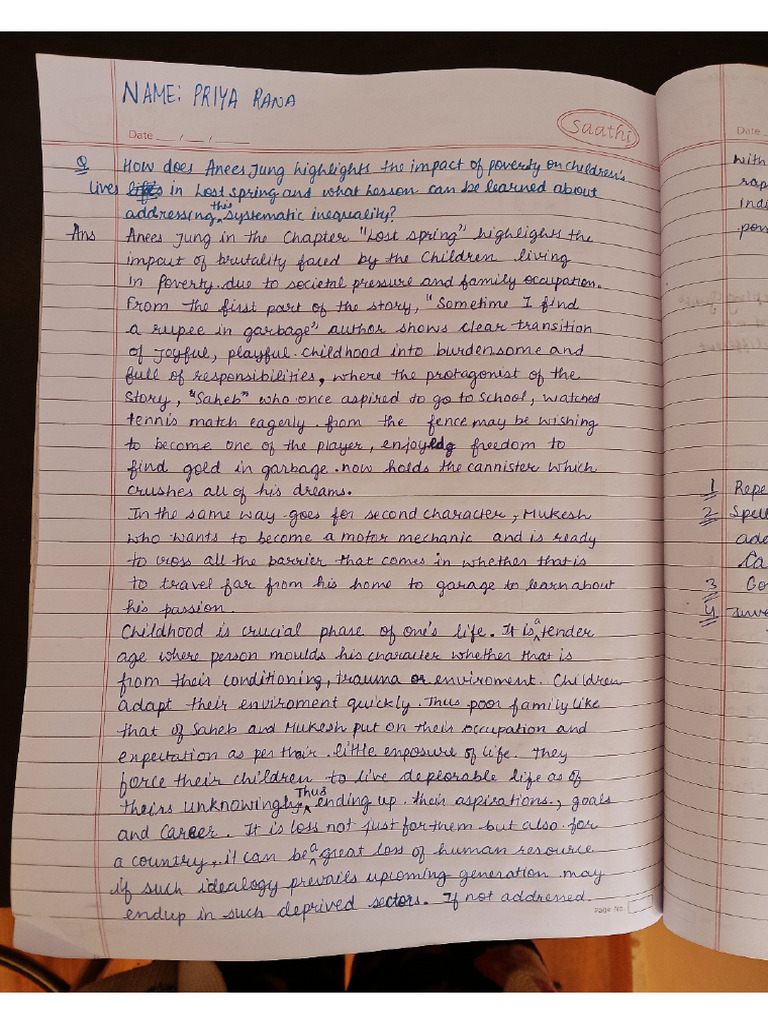 NAME: PRIYA RANA
Date __/__/____
saathi
Q How does Anees Jung highlights the impact of poverty on children's
lives in Lost spring and what lesson can be learned about
addressing this systematic inequality?
Ans Anees Jung in the Chapter "Lost spring" highlights the
impact of brutality faced by the children living
in Poverty due to societal pressure and family occupation.
From the first part of the story, "Sometime I find
a rupee in garbage" author shows clear transition
of joyful, playful childhood into burdensome and
full of responsibilities, where the protagonist of the
story, "Saheb" who once aspired to go to school, watched
tennis match eagerly from the fence may be wishing
to become one of the player, enjoyed freedom to
find gold in garbage now holds the cannister which
crushes all of his dreams.
In the same way goes for second character, Mukesh
who wants to become a motor mechanic and is ready
to cross all the barrier that comes in whether that is
to travel far from his home to garage to learn about
his passion.
Childhood is crucial phase of one's life. It is a tender
age where person moulds his character whether that is
from their conditioning, trauma or enviroment. Children
adapt their enviroment quickly. Thus poor family like
that of Saheb and Mukesh put on their occupation and
expectation as per their little exposure of life. They
force their children to live deplorable life as of
theirs unknowingly Thus ending up their aspirations, goals
and career. It is loss not just for them but also for
a country, it can be a great loss of human resource
if such idealogy prevails upcoming generation may
endup in such deprived sectors. If not addressed
Page No.
Date
with
rap
indi
pow
1 Repe
2 Spell
adde
Ca
3 Co
4